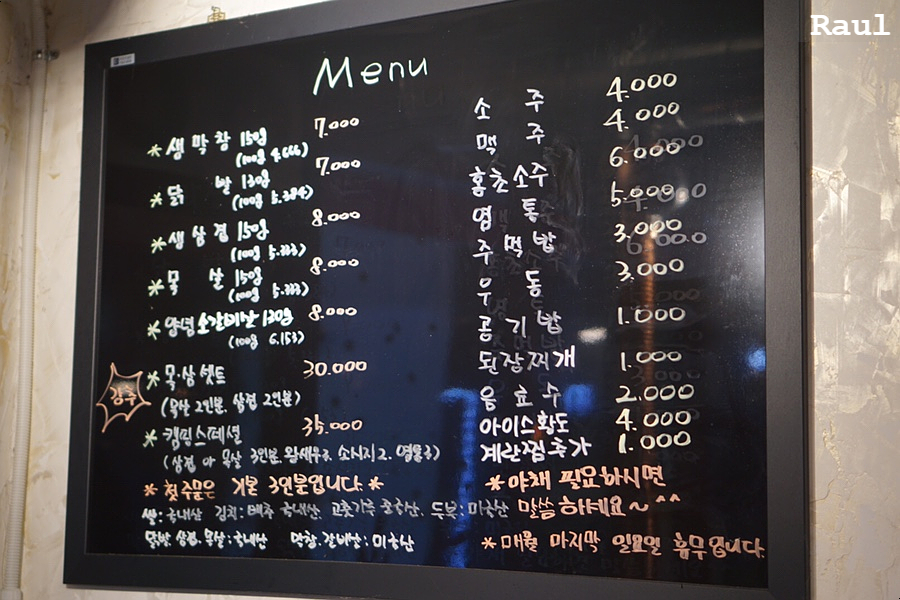 Raul
Menu
* 생막창 150g 7.000
(100g 4.666)
* 닭 발 130g 7.000
(100g 5.384)
* 생삼겹 150g 8.000
(100g 5.333)
* 목 살 150g 8.000
(100g 5.333)
* 양념소갈비살 130g 8.000
(100g 6.153)
강추
* 목삼셋트 30.000
(목살 2인분, 삼겹 2인분)
* 캠핑스페셜 35.000
(삼겹 or 목살 3인분, 왕새우3, 소시지2,
* 첫주문은 기본 3인분입니다. *
쌀: 국내산 김치: 배추 국내산, 고춧가루 중국산, 두부: 미국산
닭발, 삼겹, 목살: 국내산 막창, 갈비살: 미국산
소 주 4.000
맥 주 4.000
홍초소주 6.000
염 통 5.000
주 먹 밥 3.000
우 동 3.000
공 기 밥 1.000
된장찌개 1.000
음 료 수 2.000
아이스황도 4.000
계란찜추가 1.000
* 야채 필요하시면
말씀하세요~^^
* 매월 마지막 일요일 휴무입니다.